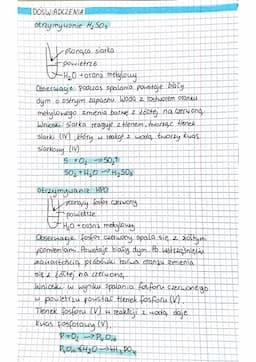 DOŚWIADCZENIA
otrzymywanie H₂SO₃
płonąca siarka
powietrze
H₂O + oranż metylowy
Obserwacje: Podczas spalania powstaje biały
dym o ostrym zapachu. Woda z roztworem oranżu
metylowego zmienia barwę z żółtej na czerwoną.
Wnioski: Siarka reaguje z tlenem, tworząc tlenek
siarki (IV), który w reakcji z wodą tworzy kwas
siarkowy (IV)
S + O₂ → SO₂↑
SO₂ + H₂O → H₂SO₃
Otrzymywanie
płonący fosfor czerwony
powietrze
H₂O + oranż metylowy
Obserwacje: Fosfor czerwony spala się z żółtym
płomieniem. Powstaje biały dym. Po wstrząśnięciu
zawartością probówki barwa oranżu zmienia
się z żółtej na czerwoną.
Wnioski: W wyniku spalania fosforu czerwonego
w powietrzu powstał tlenek fosforu (V).
Tlenek fosforu (V) w reakcji z wodą daje
kwas fosforowy (V).
P + O₂ → P₄O₁₀
P₄O₁₀ + H₂O → H₃PO₄